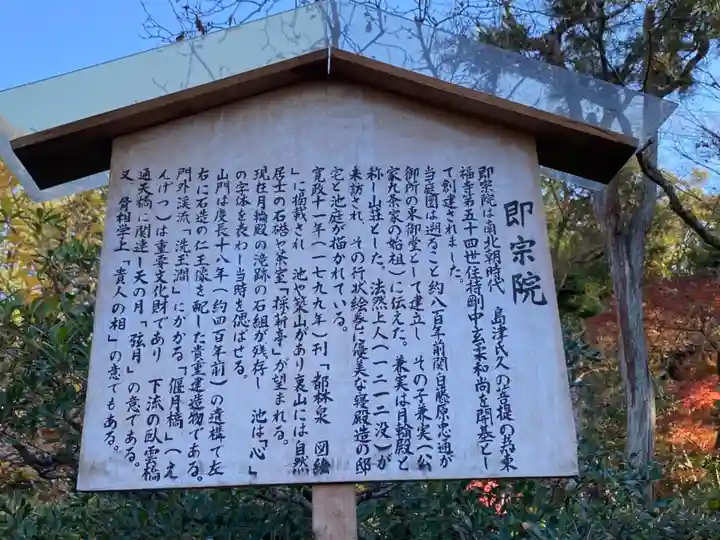 即宗院
即宗院は南北朝時代 島津氏久の菩提の為東
福寺第五十四世住持剛中玄柔和尚を開基とし
て創建されました。
当庭園は遡ること約八百年前関白藤原忠通が
御所の東御堂として建立し その子兼実(公
家九条家の始祖)に伝えた。兼実は月輪殿と
称し山荘とした。法然上人(一二一二没)が
来訪され、その行状絵巻に優美な寝殿造の邸
宅と池庭が描かれている。
寛政十一年(一七九九年)刊「都林泉 図絵
」に掲載され 池や築山があり裏山には自然
居士の石碏や茶室「採薪亭」が望まれる。
現在月輪殿の滝跡の石組が残存し 池は「心」
の字体を表わし当時を偲ばせる。
山門は慶長十八年(約四百年前)の遺構で左
右に石造の仁王像を配した貴重建造物である。
門外渓流「洗玉澗」にかかる「偃月橋 」(え
んげつ)は重要文化財であり 下流の臥雲橋
通天橋に関連し天の月「弦月」の意である。
又、骨相学上「貴人の相」の意でもある。